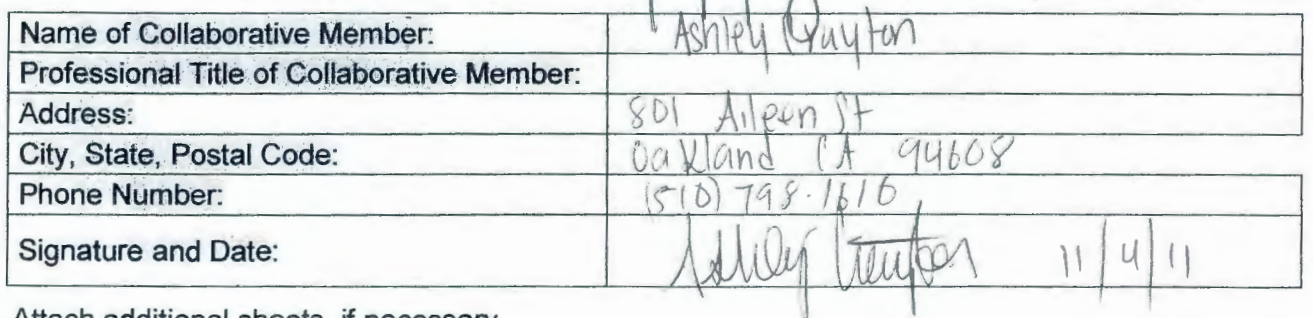 Name of Collaborative Member: Ashley
Professional Title of Collaborative Member:
Address: 801 Aileen St
City, State, Postal Code: Oakland CA 94608
Phone Number: (510) 798-1616
Signature and Date: Ashley 11/4/11
Attach additional sheets, if necessary